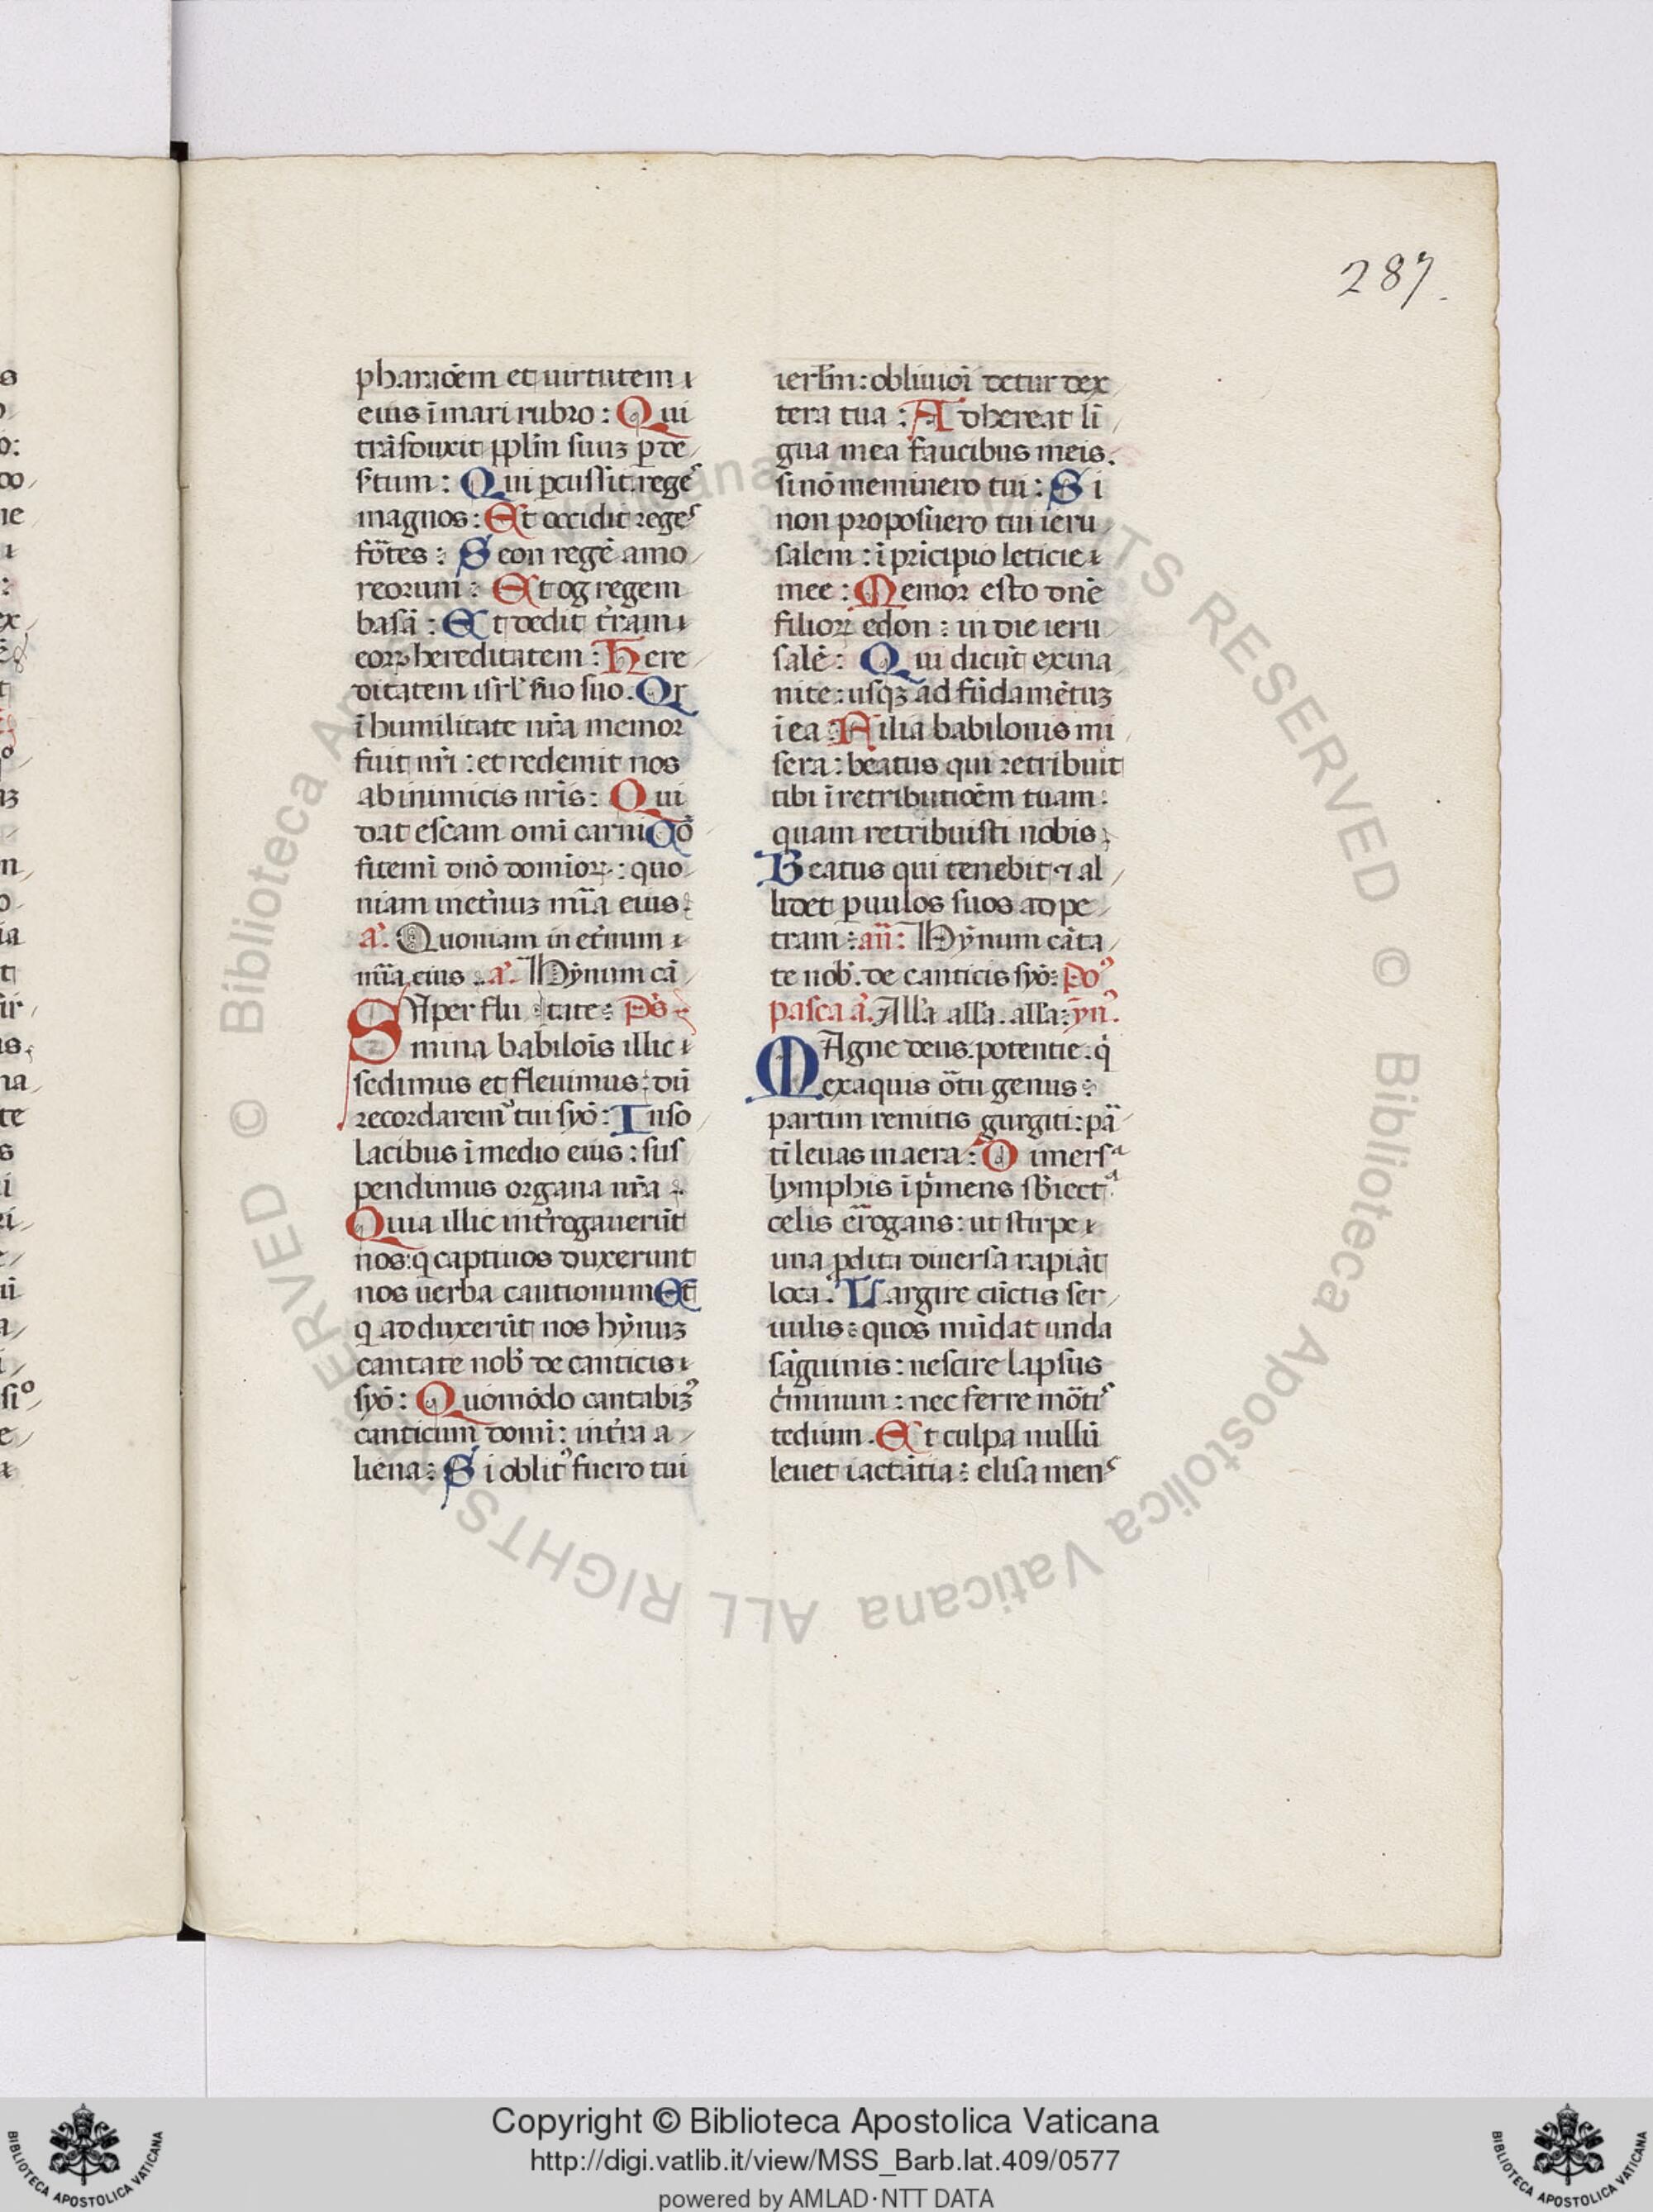 287.
pharaōem et uirtutem
eius ī mari rubro: Qui
trāsduxit pplm̄ suuʒ ꝑ de
s̓tum: Qui ꝑcussit regeˢ
magnos: Et occidit regeˢ
fōtes: Seon regē amo
reorum: Et og regem
basā: Et dedit t̓ram
eoꝝ hereditatem: Here
ditatem isrl̓ s̓uo suo. Qr
ī humilitate nr̄a memor
fuit nr̄i: et redemit nos
ab inimicis nr̄is: Qui
dat escam omī carni Cō
fitemī dnō domīoꝝ: quo
niam inet̓nuʒ mīa eius:
a. Quoniam in et̓num
mīa eius. a. Hȳnum cā
SUper flu tate: ps
mina babilōis illic
sedimus et fleuimus: dū
recordarem᷒ tui syō: Inso
lacibus ī medio eius: sus
pendimus organa nr̄a
Quia illic int̓rogauerūt
nos: q captiuos duxerunt
nos uerba cantionum Et
q adduxerūt nos hȳnuʒ
cantate nob̓ de canticis
syō: Quomōdo cantabiʒ᷒
canticum domī: int̓ra a
liena: Si oblit᷒ fuero tui
ierl̄m: obliuiōi detur dex
tera tua: Adhereat lī
gua mea faucibus meis.
si nō meminero tui: Si
non proposuero tui ieru
salem: ī prīcipio leticie
mee: Memor esto dnē
filioꝝ edon: in die ieru
salē: Qui dicūt exina
nite: usqʒ ad fūdamētuʒ
ī ea: Filia babilonis mi
sera: beatus qui retribuit
tibi ī retributiōem tuam:
quam retribuisti nobis:
Beatus qui tenebit ⁊ al
lidet ꝑuulos suos ad pe
tram: an̄: Hȳnum cāta
te nob̓. de canticis syō: Po᷒
pasca a. All̓a all̓a. all̓a: yn̄.
MAgne deus potentie. q̇
exaquis ōtu genus:
partim remitis gurgiti: pā
tī leuas in aera: D imersᵃ
lymphis īp̓mens sb̓iectᵃ
celis er̄ogans: ut stirpe
una ꝓdita diuersa rapiāt
loca. Largire cūctis ser
uulis: quos mūdat unda
sāguinis: nescire lapsus
c̓minum: nec ferre mōtiˢ
tedium. Et culpa nullū
leuet iactātia: elisa menˢ
Copyright © Biblioteca Apostolica Vaticana
http://digi.vatlib.it/view/MSS_Barb.lat.409/0577
powered by AMLAD·NTT DATA